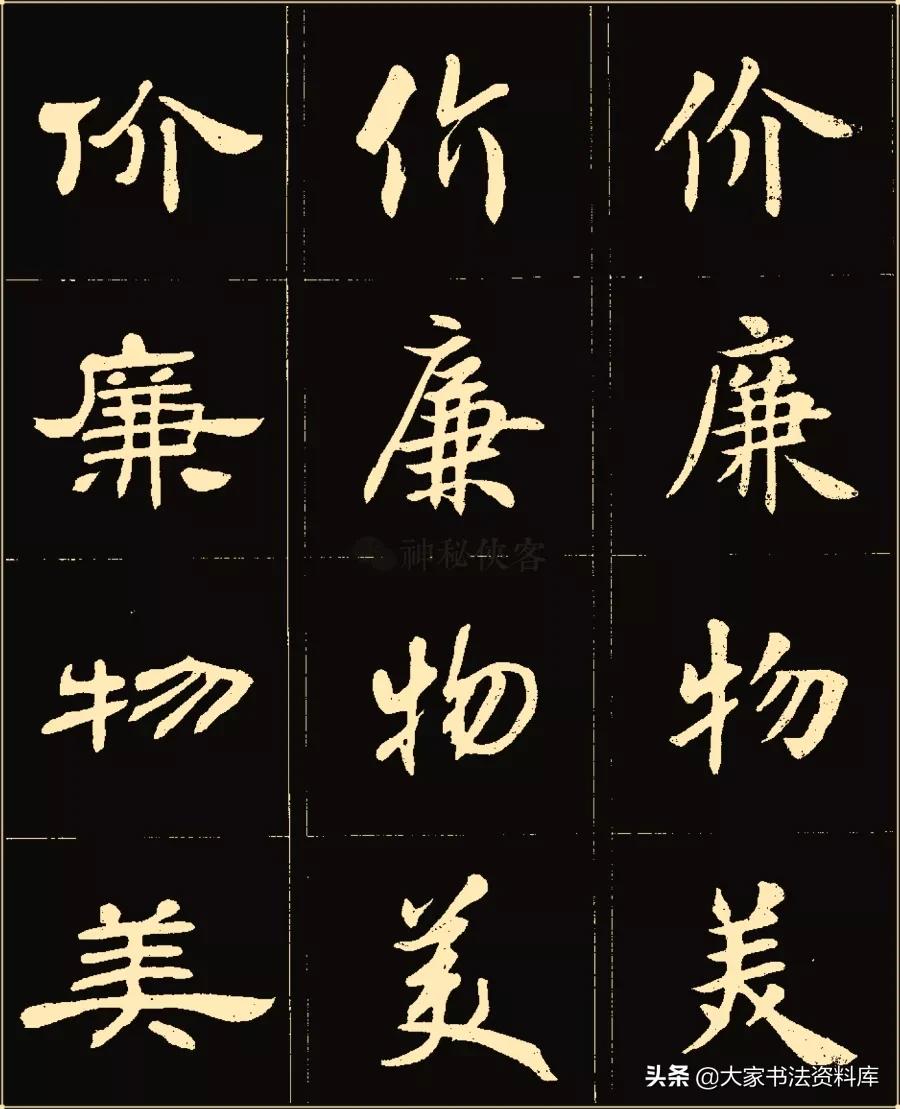 价 价 价
廉 廉 廉
神秘侠客
物 物 物
美 美 美
头条 @大家书法资料库